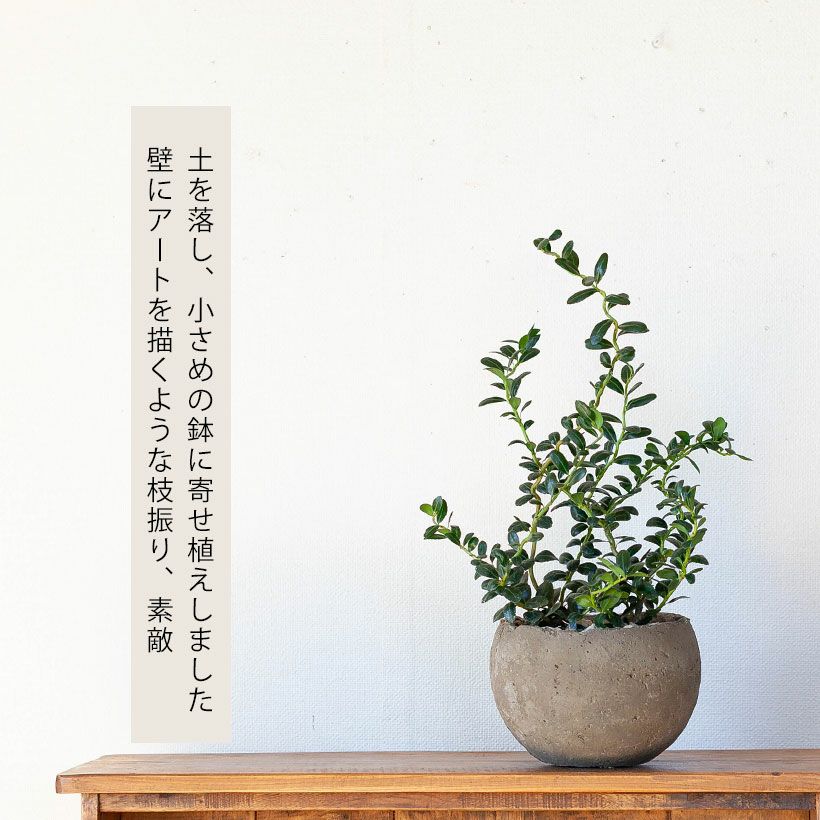 土を落し、小さめの鉢に寄せ植えしました
壁にアートを描くような枝振り、素敵